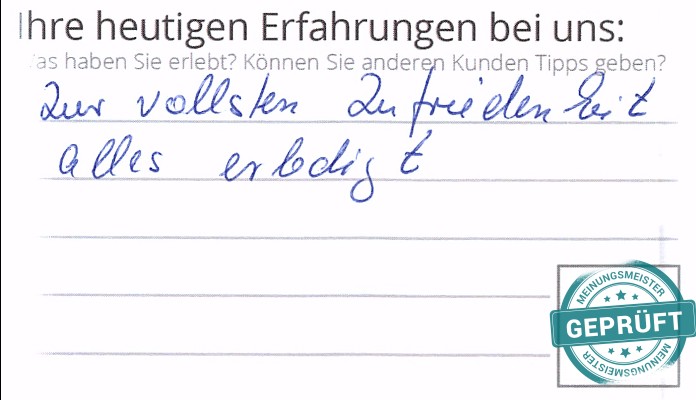 Ihre heutigen Erfahrungen bei uns:
Was haben Sie erlebt? Können Sie anderen Kunden Tipps geben?
Zur vollsten Zufriedenheit
alles erledigt
MEINUNGSMEISTER
GEPRÜFT
MEINUNGSMEISTER